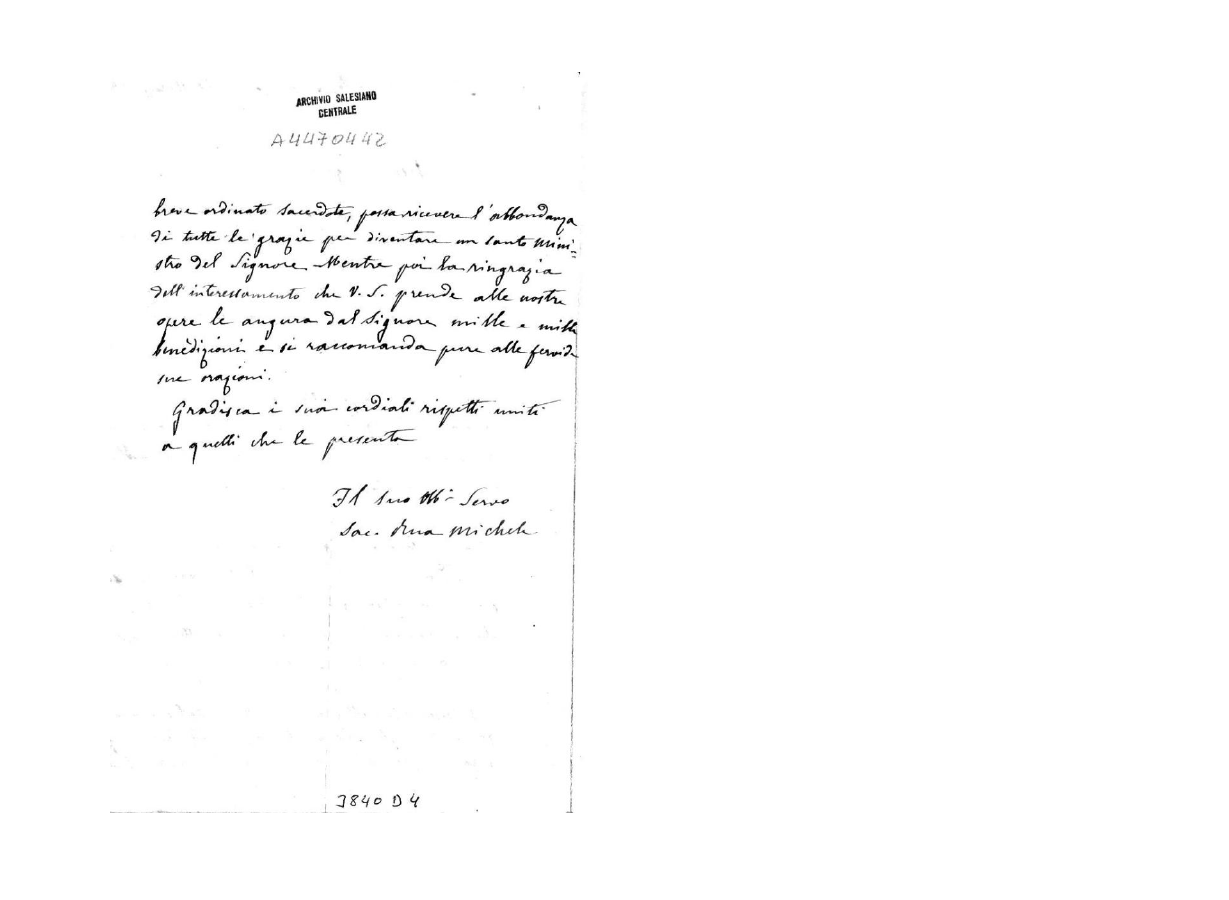 ARCHIVIO SALESIANO
CENTRALE
A4470442
breve ordinato sacerdote, possa ricevere l'abbondanza
di tutte le grazie per diventare un santo mini-
stro del Signore. Mentre poi la ringrazia
dell'interessamento che V. S. prende alle nostre
opere le augura dal Signore mille e mille
benedizioni e si raccomanda pure alle fervide
sue orazioni.
Gradisca i suoi cordiali rispetti uniti
a quelli che le presenta
Il suo Servo
Sac. Rua Michele
3840 D 4